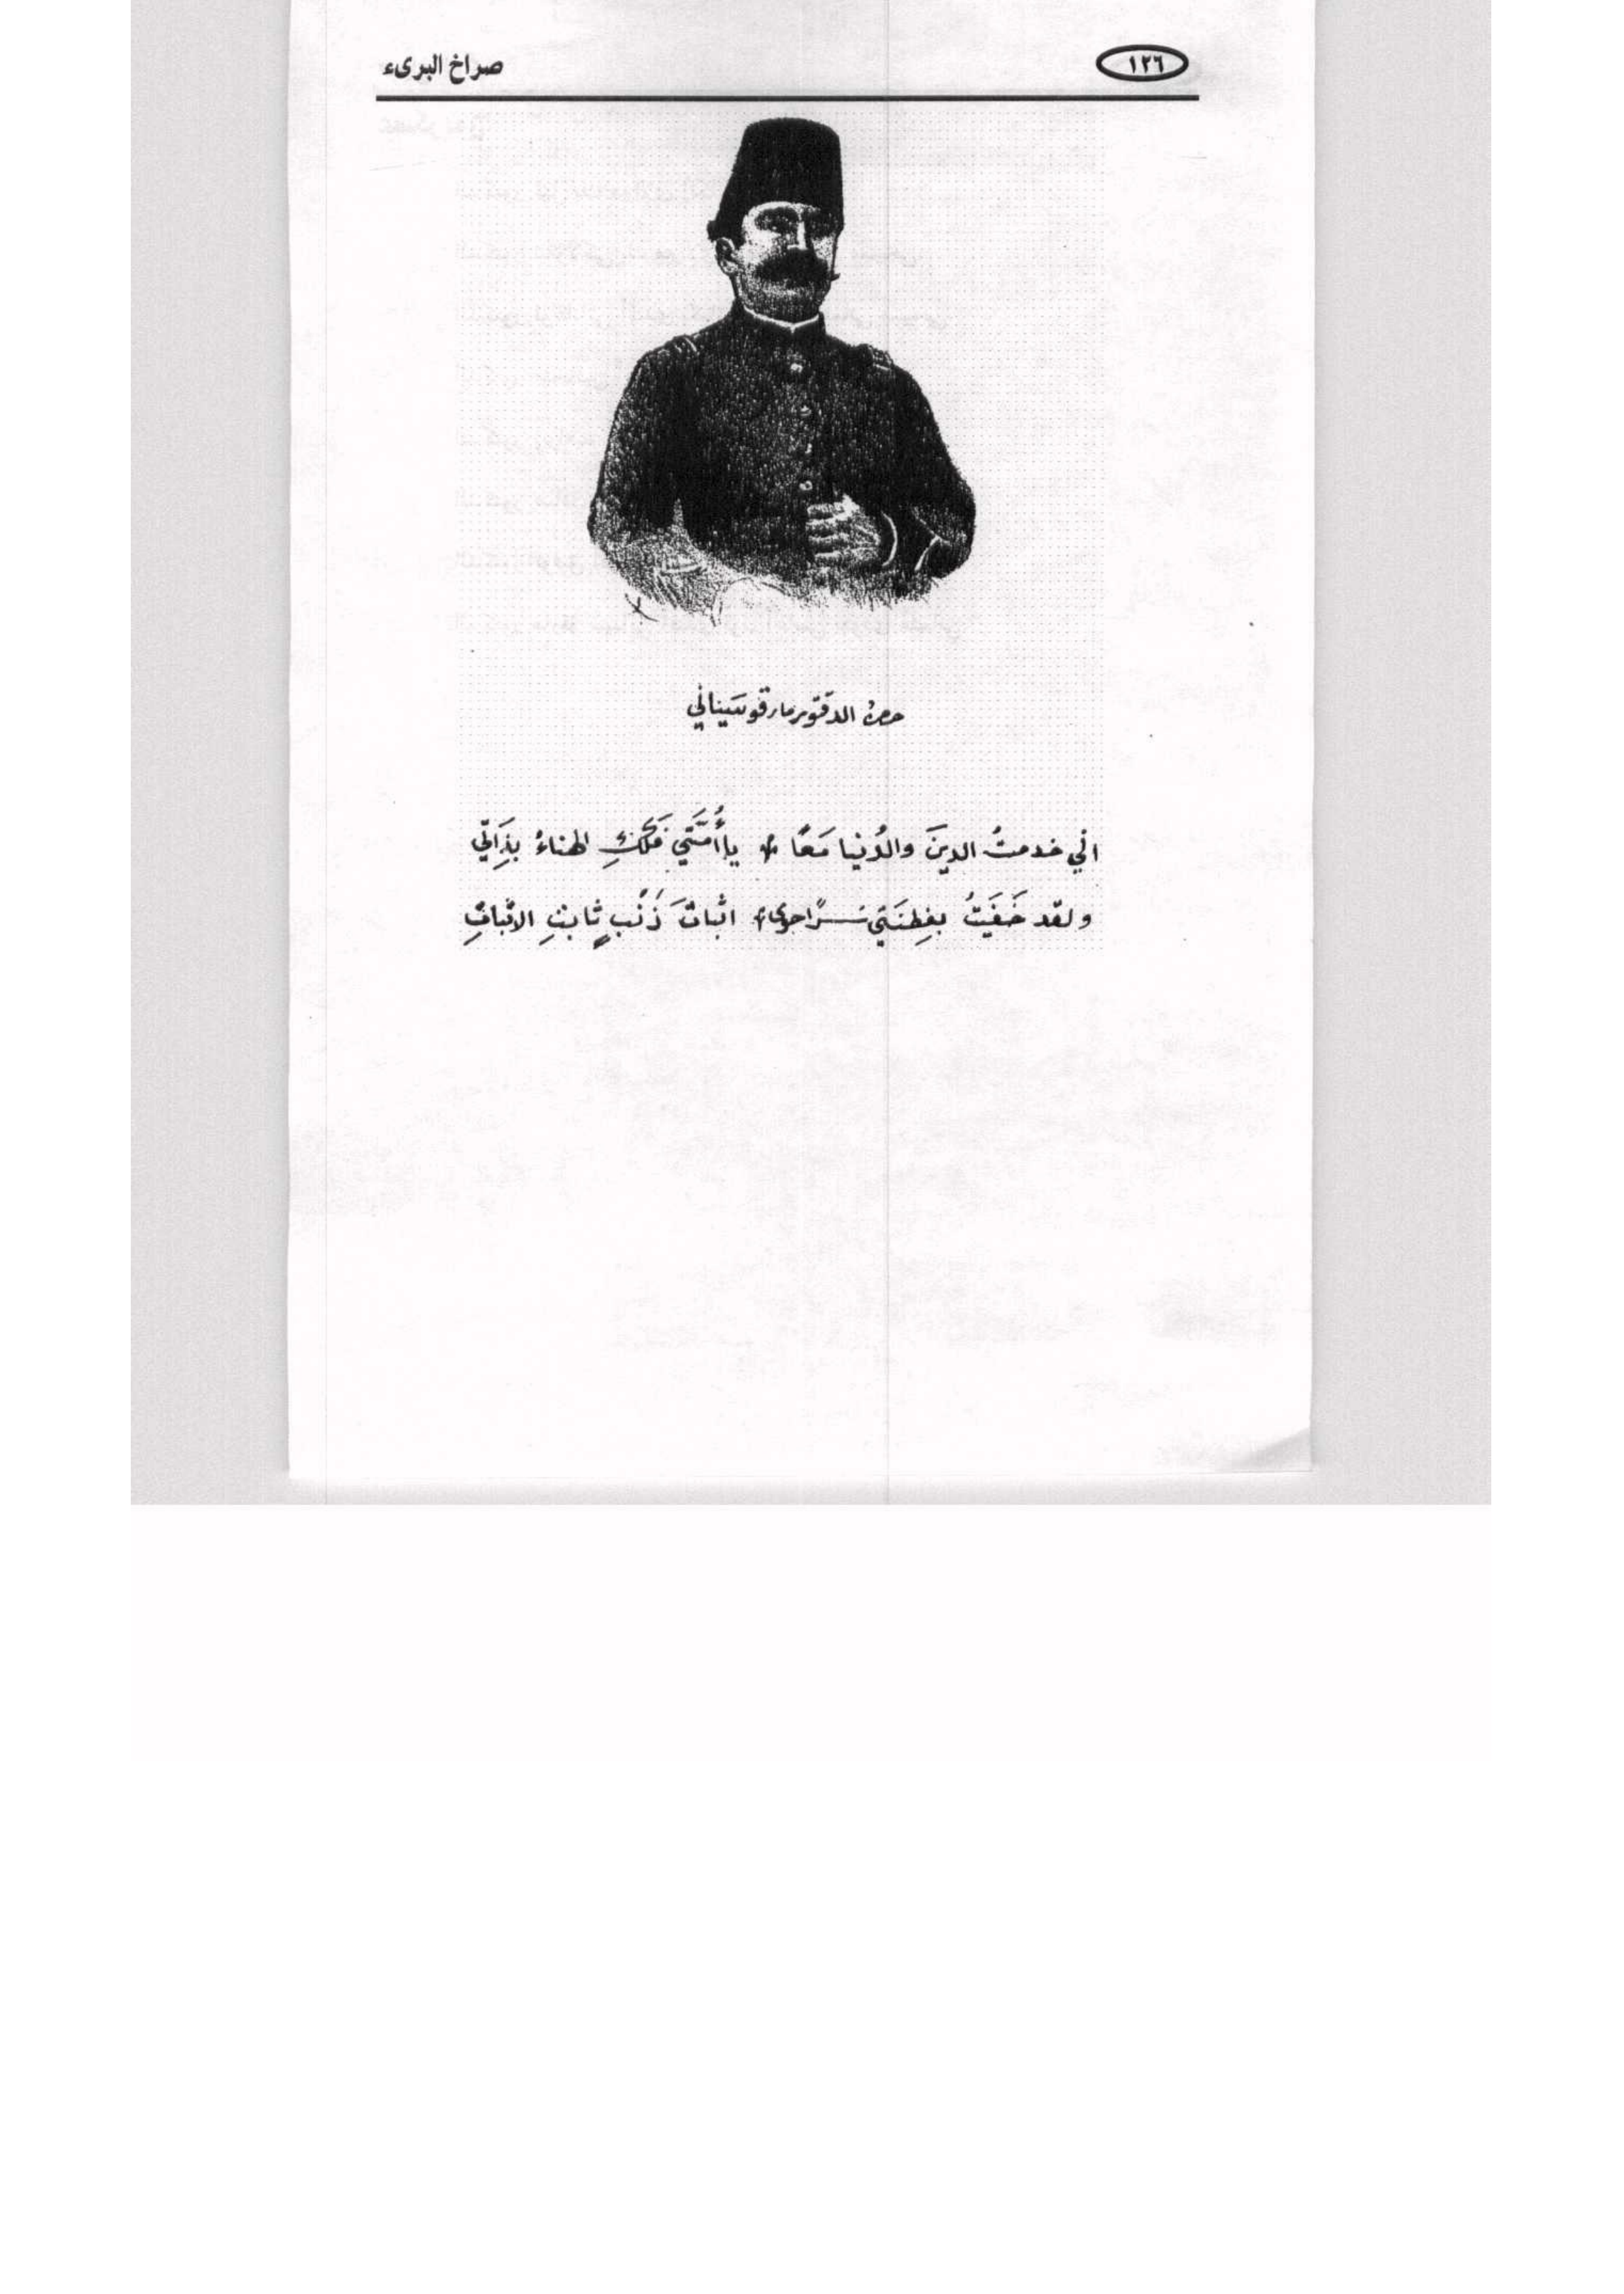 ١٢٦
صراخ البرىء
الدقتور مارقو سيناني
اني خدمتُ الدينَ والدُنيا مَعًا * ياأُمَّتي فَلَكِ الهناءُ بذَاتي
ولقد خَفَيتُ بفِطنَتي سرًا حوى * اثباتَ ذَنْبٍ ثابتِ الاثباتِ